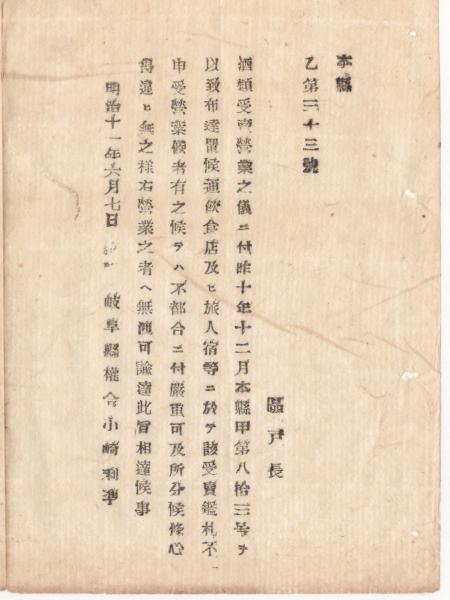 本縣
乙第三十三號
區戸長
酒類受賣營業之儀ニ付昨十年十二月本縣甲第八拾三号ヲ
以致布達置候通飲食店及ヒ旅人宿等ニ於テ該受賣鑑札不
申受營業候者有之候テハ不都合ニ付嚴重可及所分候條心
得違ヒ無之様右營業之者ヘ無洩可諭達此旨相達候事
明治十一年六月七日 岐阜縣權令小崎利準